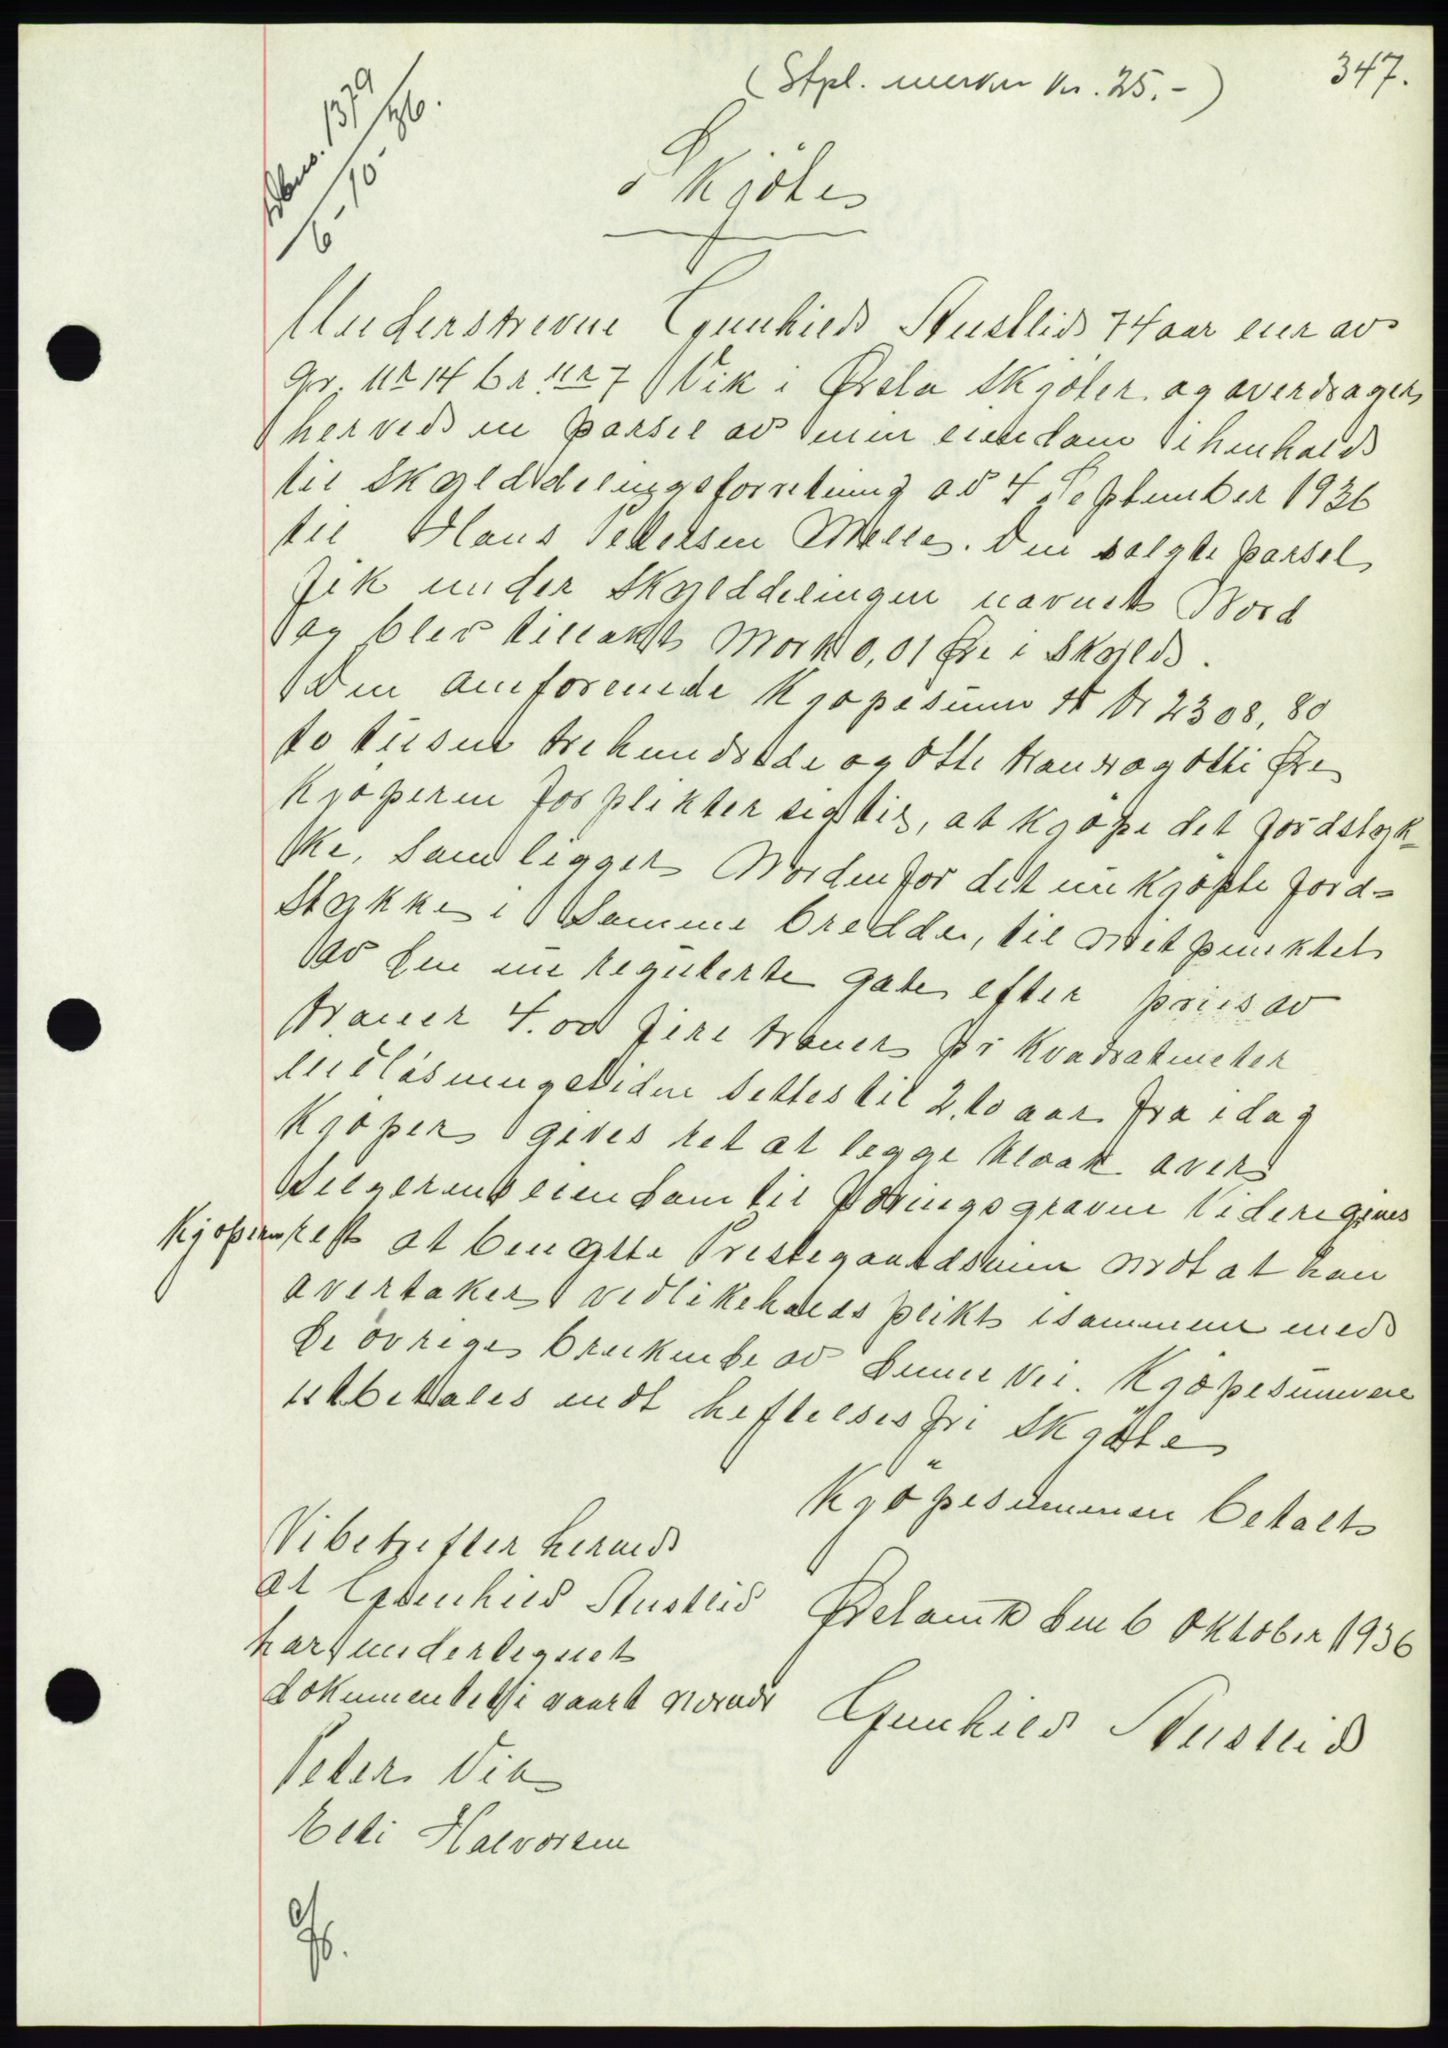 (Stpl. merker kr. 25.-)
347.
Dbno. 1379
6-10-36.
Skjöte
Underskrevne Gunhild Austlid 74 aar eier av
gr. nr 14 br. nr 7 Vik i Ørsta skjöter og averdrager
herved en parsel av min eiendom ihenhold
til skylddelingsforretning av 4 September 1936
til Hans Petersen Melle. Den solgte parsel
fik under skylddelingen navnet Nord
og blev tillakt Mark 0,01 Øre i skyld.
Den omforenede Kjöpesum er kr 2308,80
to tusen trehundrede og otte kroner og otti Øre
Kjöperen forplikter sig til, at kjöpe det jordstyk-
ke, som ligger Nordenfor det nu kjöpte jord-
stykke i samme bredde, til mitpunktet
av den nu regulerte gate efter pris av
kroner 4.00 fire kroner pr kvadratmeter
indløsningstiden settes til 2, to aar fra idag
Kjöper gives ret at legge kloak over
selgerens eiendom til Videre gives
Kjöperen ret at benytte Prestegaardsveien mot at han
overtaker vedlikeholds plikt isammen med
de övrige brukende av denne vei. Kjöpesummen
utbetales mot heftelsesfri Skjöte
Kjöpesummen betalt
Vi bekrefter herved
at Gunhild Austlid
har undertegnet
dokumentet i vaart nærvær
Ørstavik den 6 Oktober 1936
Gunhild Austlid
Peter Vik
Eldi Halvorsen